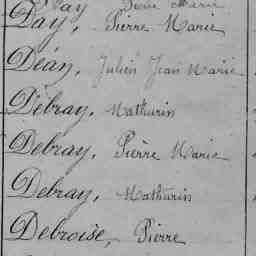 Day, Pierre Marie
Déan, Julien Jean Marie
Debray, Mathurin
Debray, Pierre Marie
Debray, Mathurin
Debroise, Pierre